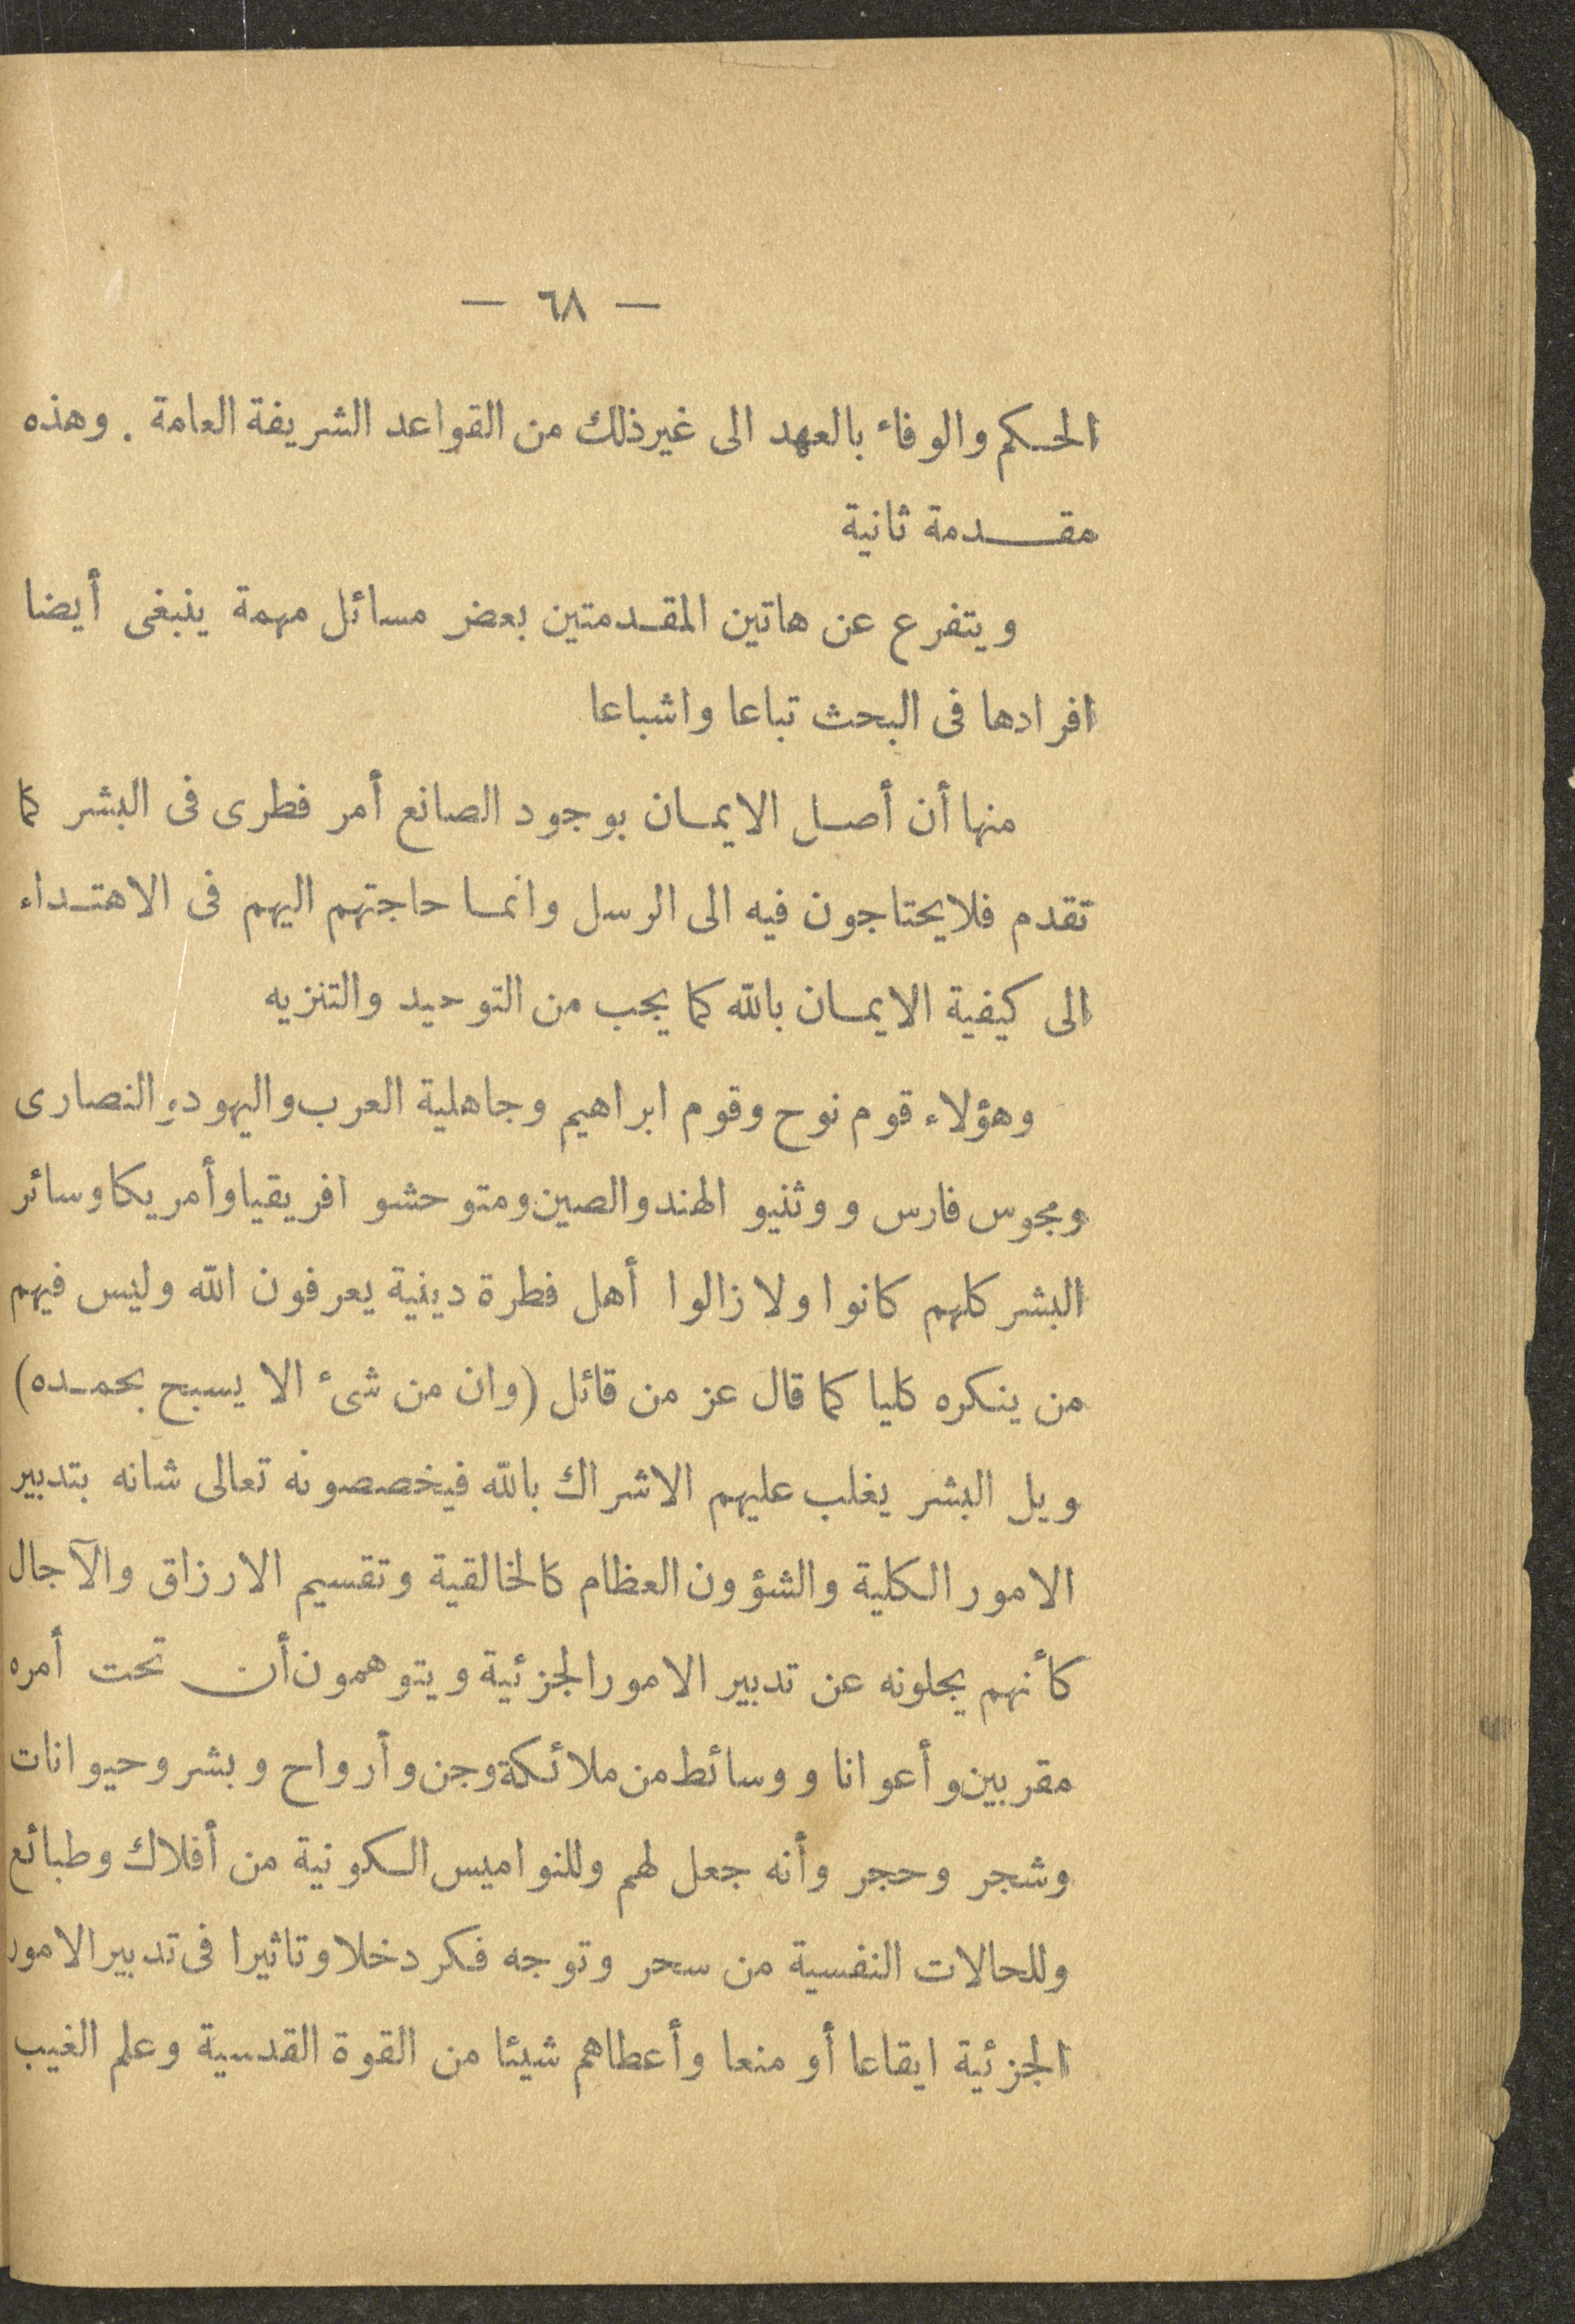 — ٦٨ —
الحكم والوفاء بالعهد الى غير ذلك من القواعد الشريفة العامة . وهذه
مقدمة ثانية
ويتفرع عن هاتين المقدمتين بعض مسائل مهمة ينبغى أيضا
افرادها فى البحث تباعا واشباعا
منها أن أصل الايمان بوجود الصانع أمر فطرى فى البشر كما
تقدم فلا يحتاجون فيه الى الرسل وانما حاجتهم اليهم فى الاهتداء
الى كيفية الايمان بالله كما يجب من التوحيد والتنزيه
وهؤلاء قوم نوح وقوم ابراهيم وجاهلية العرب واليهود والنصارى
ومجوس فارس ووثنيو الهند والصين ومتوحشو افريقيا وأمريكا وسائر
البشر كلهم كانوا ولا زالوا أهل فطرة دينية يعرفون الله وليس فيهم
من ينكره كليا كما قال عز من قائل (وان من شئ الا يسبح بحمده)
ويل البشر يغلب عليهم الاشراك بالله فيخصصونه تعالى شانه بتدبير
الامور الكلية والشؤون العظام كالخالقية وتقسيم الارزاق والآجال
كأنهم يجلونه عن تدبير الامور الجزئية ويتوهمون أن تحت أمره
مقربين وأعوانا ووسائط من ملائكة وجن وأرواح وبشر وحيوانات
وشجر وحجر وأنه جعل لهم وللنواميس الكونية من أفلاك وطبائع
وللحالات النفسية من سحر وتوجه فكر دخلا وتاثيرا فى تدبير الامور
الجزئية ايقاعا أو منعا وأعطاهم شيئا من القوة القدسية وعلم الغيب